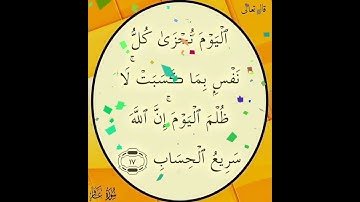 قال تعالى
ٱلْيَوْمَ تُجْزَىٰ كُلُّ
نَفْسٍۭ بِمَا كَسَبَتْ ۚ لَا
ظُلْمَ ٱلْيَوْمَ ۚ إِنَّ ٱللَّهَ
سَرِيعُ ٱلْحِسَابِ ١٧
سورة غافر